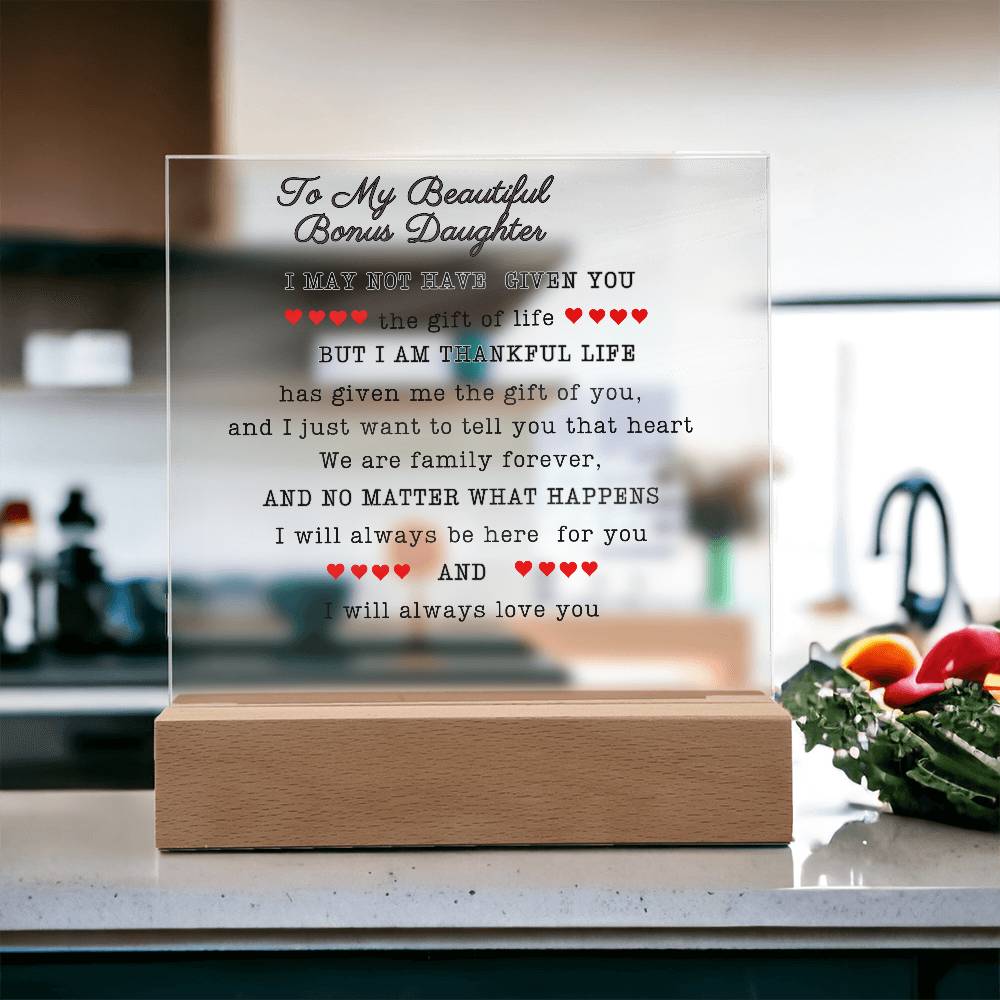 To My Beautiful
Bonus Daughter
I MAY NOT HAVE GIVEN YOU
♥♥♥♥ the gift of life ♥♥♥♥
BUT I AM THANKFUL LIFE
has given me the gift of you,
and I just want to tell you that heart
We are family forever,
AND NO MATTER WHAT HAPPENS
I will always be here for you
♥♥♥♥ AND ♥♥♥♥
I will always love you